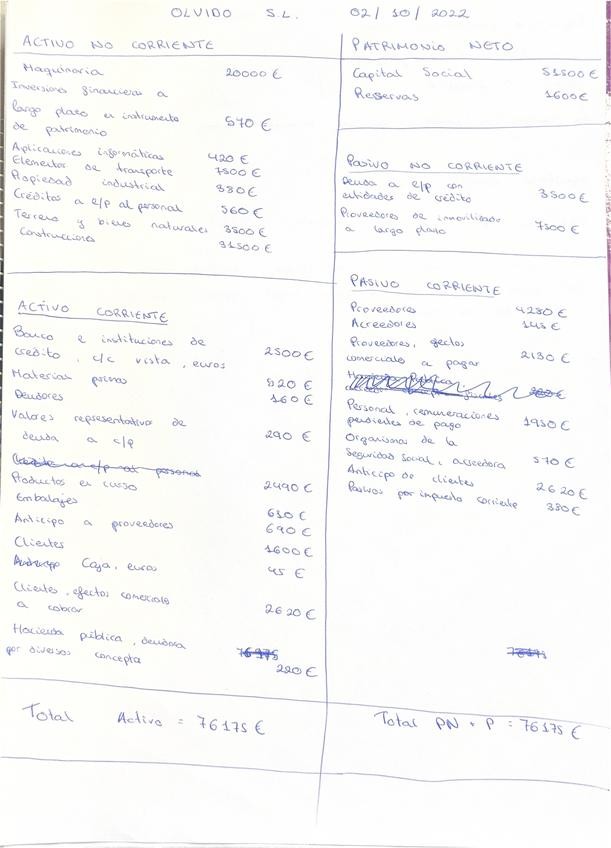 OLVIDO S.L. 02/10/2022
ACTIVO NO CORRIENTE
Maquinaria 20000 €
Inversiones financieras a
largo plazo en instrumento
de patrimonio 570 €
Aplicaciones informáticas 420 €
Elementos de transporte 7500 €
Propiedad industrial 880 €
Créditos a l/p al personal 560 €
Terreno y bienes naturales 3500 €
Construcciones 31500 €
ACTIVO CORRIENTE
Banco e instituciones de
crédito, c/c vista, euros 2500 €
Materias primas 520 €
Deudores 160 €
Valores representativos de
deuda a c/p 290 €
Productos en curso 2490 €
Embalajes 610 €
Anticipo a proveedores 690 €
Clientes 1600 €
Caja, euros 45 €
Clientes, efectos comerciales
a cobrar 2620 €
Hacienda pública, deudora
por diversos conceptos 220 €
Total Activo = 76175 €
PATRIMONIO NETO
Capital Social 51500 €
Reservas 1600 €
PASIVO NO CORRIENTE
Deuda a l/p con
entidades de crédito 3500 €
Proveedores de inmovilizado
a largo plazo 7500 €
PASIVO CORRIENTE
Proveedores 4280 €
Acreedores 145 €
Proveedores, efectos
comerciales a pagar 2130 €
Personal, remuneraciones
pendientes de pago 1950 €
Organismos de la
Seguridad Social, acreedora 570 €
Anticipo de clientes 2620 €
Pasivos por impuesto corriente 380 €
Total PN + P = 76175 €